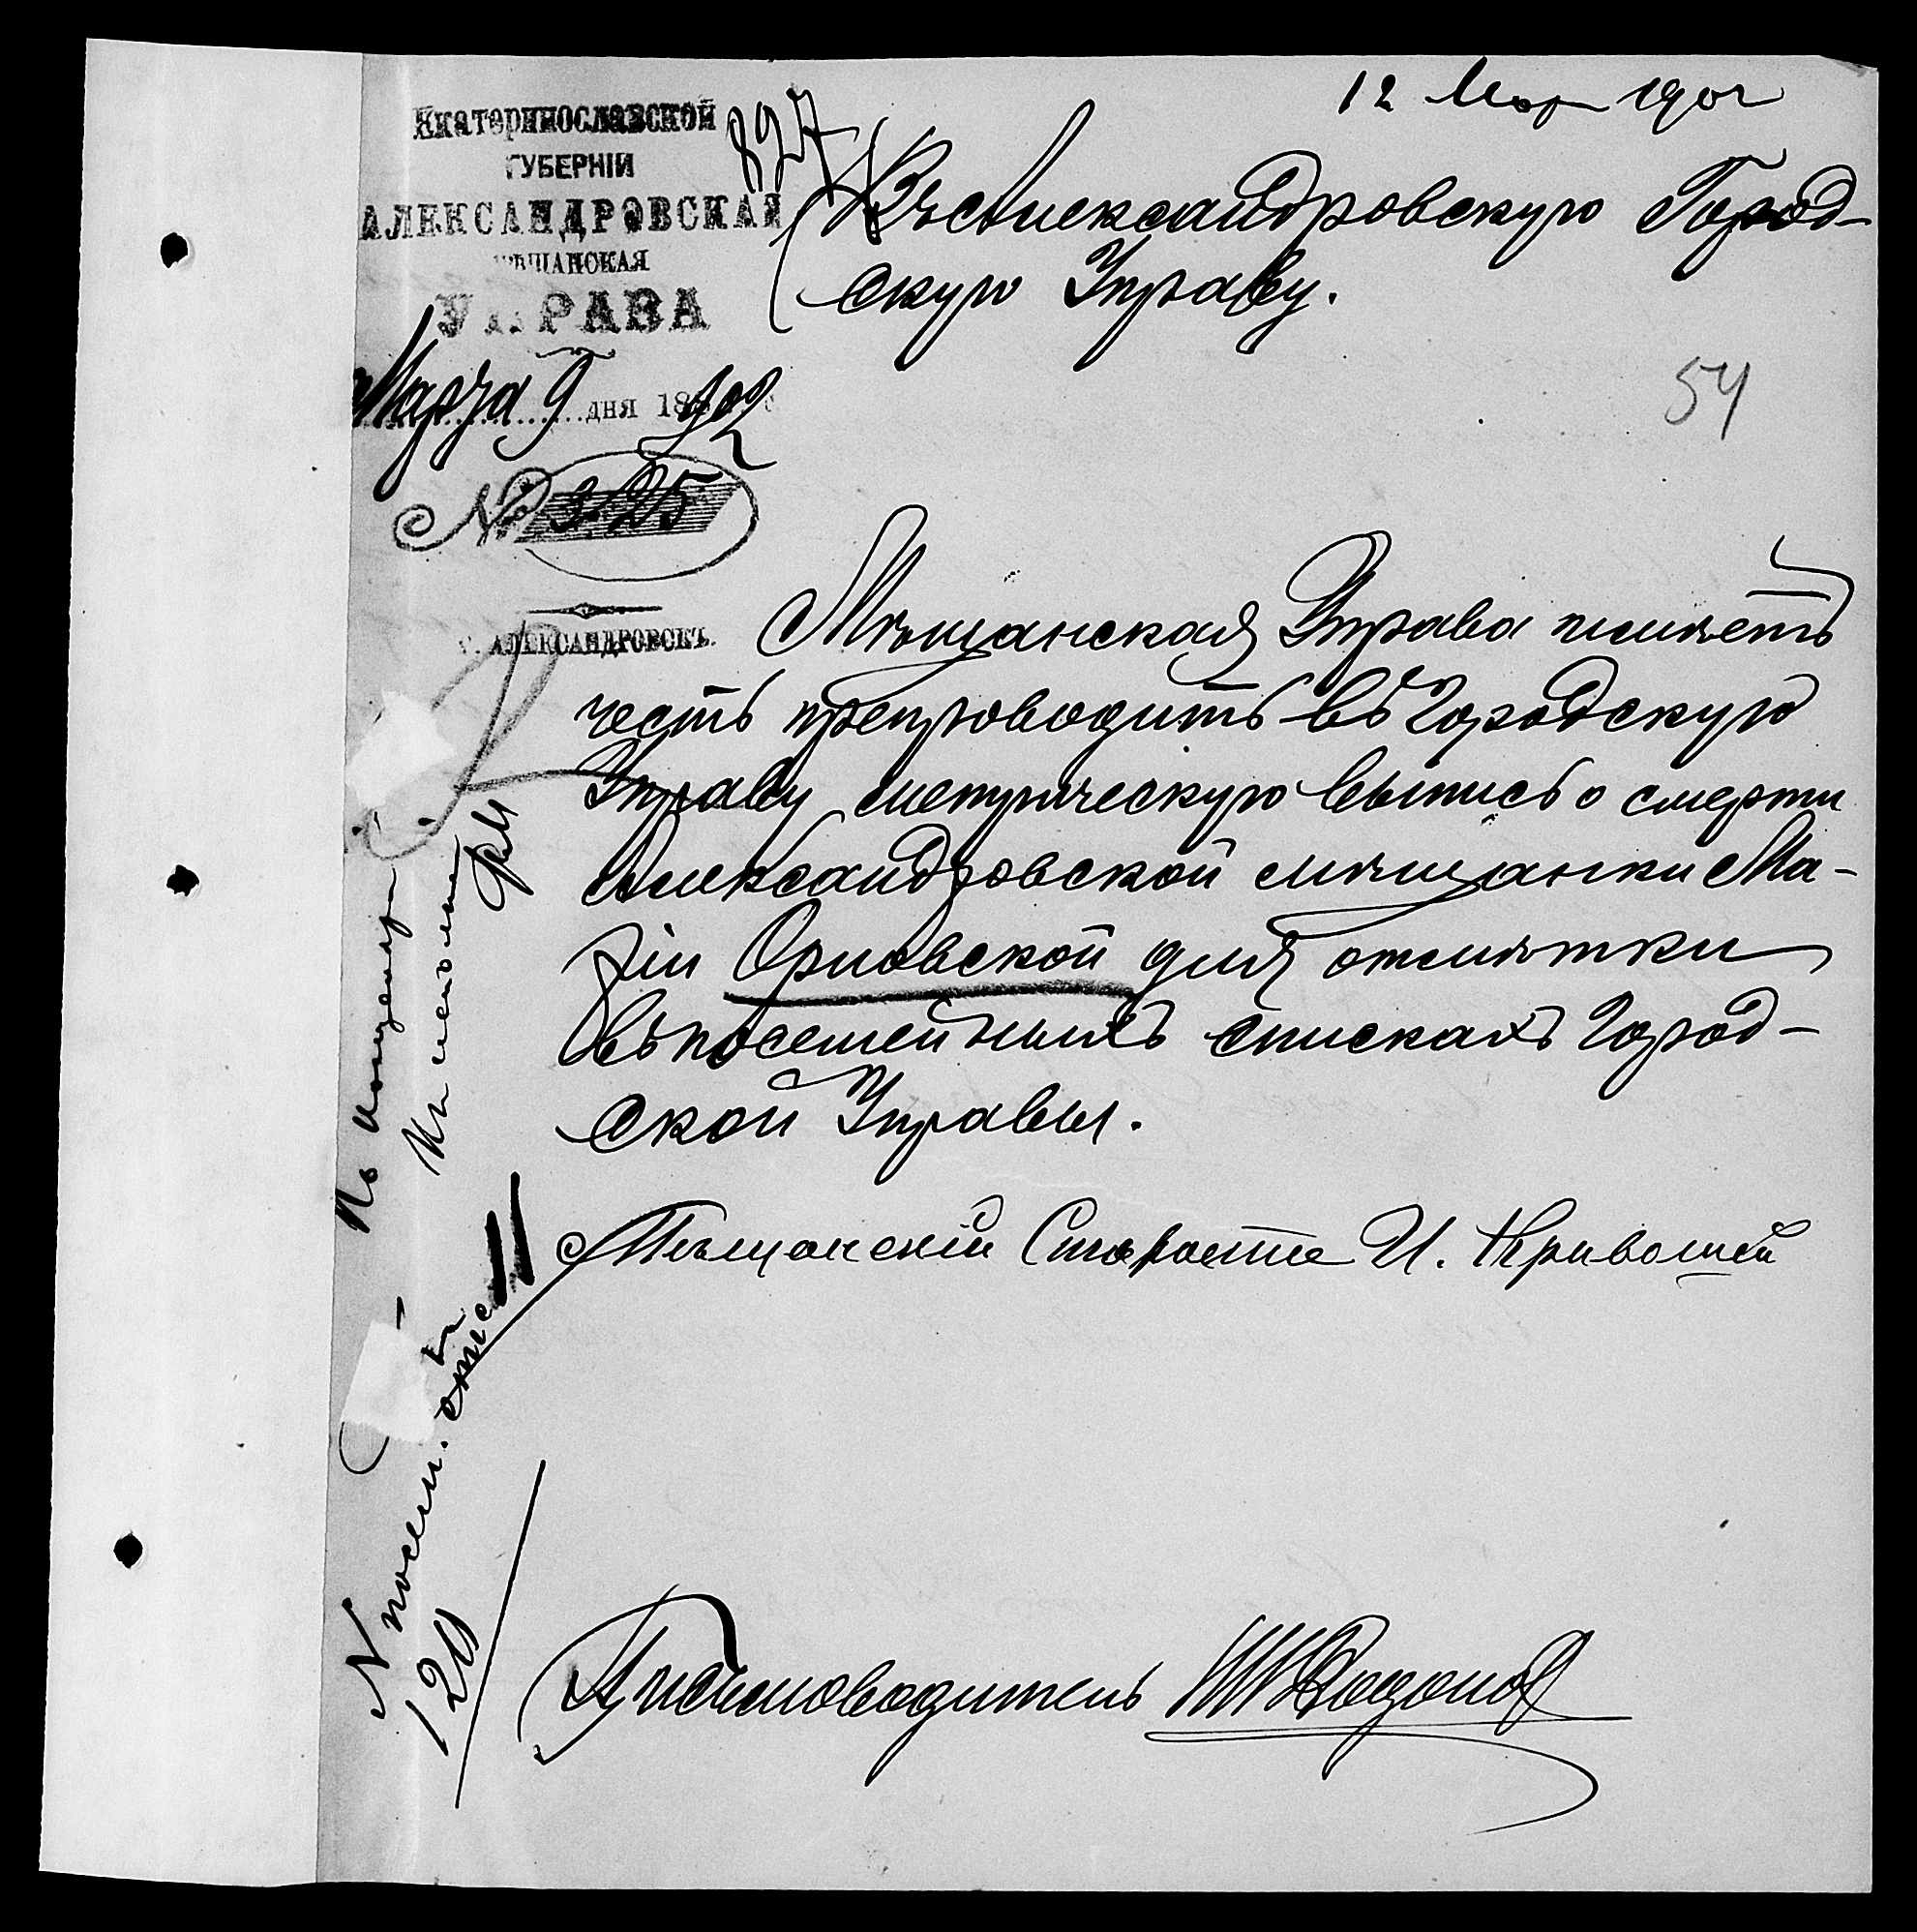 12 Мар 1902
Екатеринославской
ГУБЕРНІИ
АЛЕКСАНДРОВСКАЯ
МѢЩАНСКАЯ
УПРАВА
Марта 9 дня 1902
№ 325
г. АЛЕКСАНДРОВСКЪ.
827
Въ Александровскую Город-
скую Управу.
54
Мѣщанская Управа имѣетъ
честь препроводить въ Городскую
Управу метрическую выпись о смерти
Александровской мѣщанки Ма-
ріи Орловской для отмѣтки
въ посемейныхъ спискахъ Город-
ской Управы.
Мѣщанскій Староста И. Кривошей
Письмоводитель
Къ исполне
N посем.
120